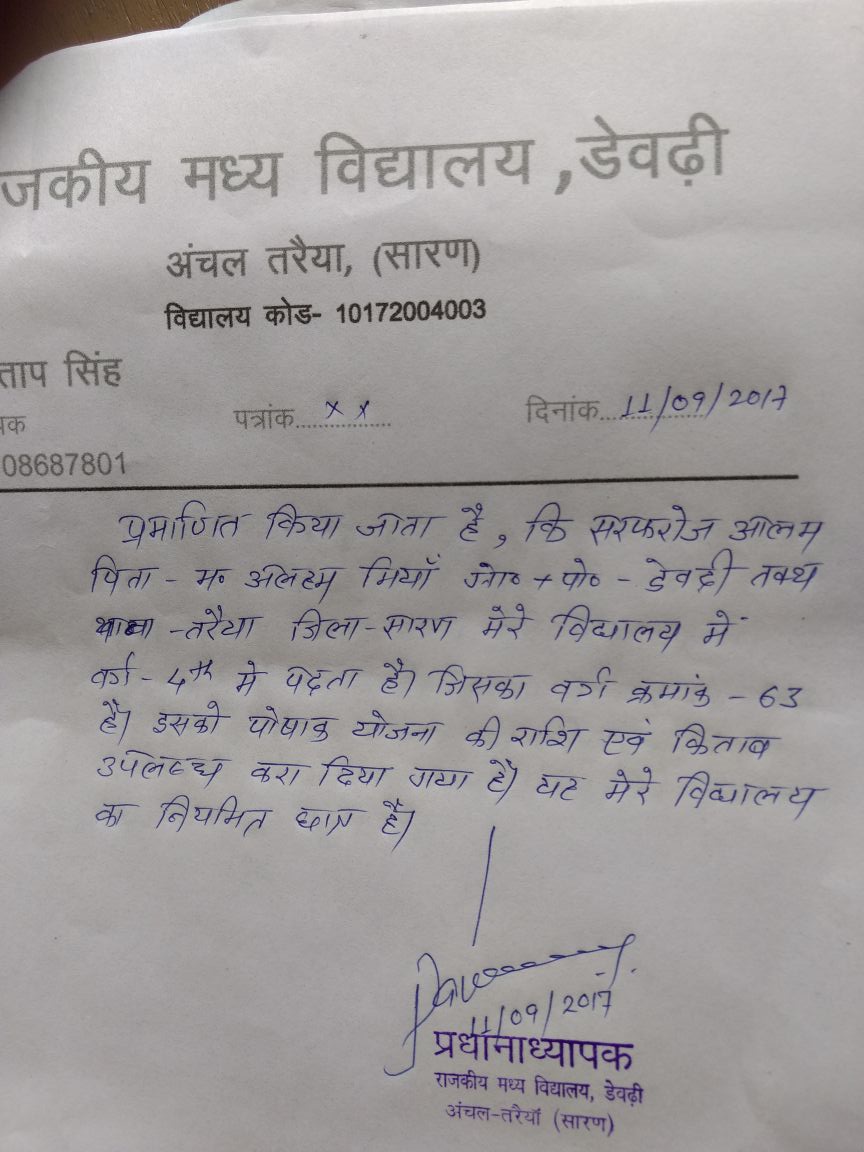 जकीय मध्य विद्यालय ,डेवढ़ी
अंचल तरैया, (सारण)
विद्यालय कोड- 10172004003
ताप सिंह
पत्रांक.... x x ....
दिनांक... 11/09/2017
पक
08687801
प्रमाणित किया जाता है, कि सरफरोज आलम
पिता - म० अलिहम मियाँ ग्रा० + पो० - डेवढ़ी
थाना - तरैया जिला - सारण मेरे विद्यालय में
वर्ग - 4th मे पढ़ता है। जिसका वर्ग क्रमांक - 63
है। इसको पोषाक योजना की राशि एवं किताब
उपलब्ध करा दिया गया है। यह मेरे विद्यालय
का नियमित छात्र है।
11/09/2017
प्रधानाध्यापक
राजकीय मध्य विद्यालय, डेवढ़ी
अंचल-तरैयाँ (सारण)